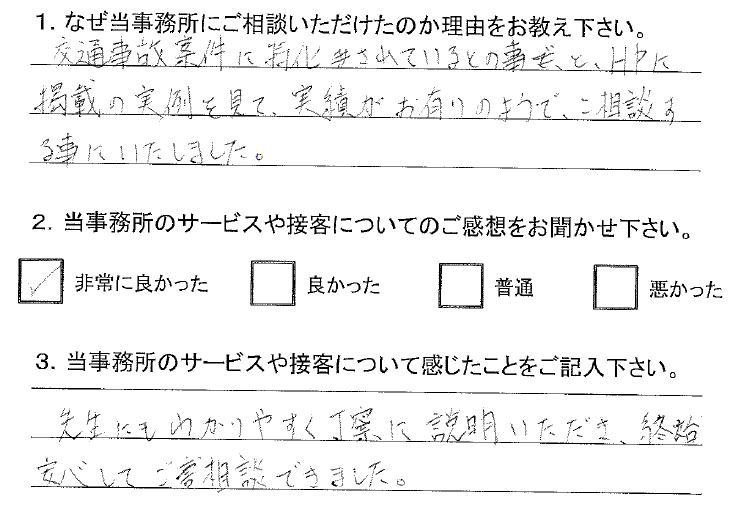 1. なぜ当事務所にご相談いただけたのか理由をお教え下さい。
交通事故案件に特化されているとの事と、HPに
掲載の実例を見て、実績がお有りのようで、ご相談す
る事にいたしました。
2. 当事務所のサービスや接客についてのご感想をお聞かせ下さい。
非常に良かった 良かった 普通 悪かった
3. 当事務所のサービスや接客について感じたことをご記入下さい。
先生にもわかりやすく丁寧に説明いただき、終始
安心してご相談できました。